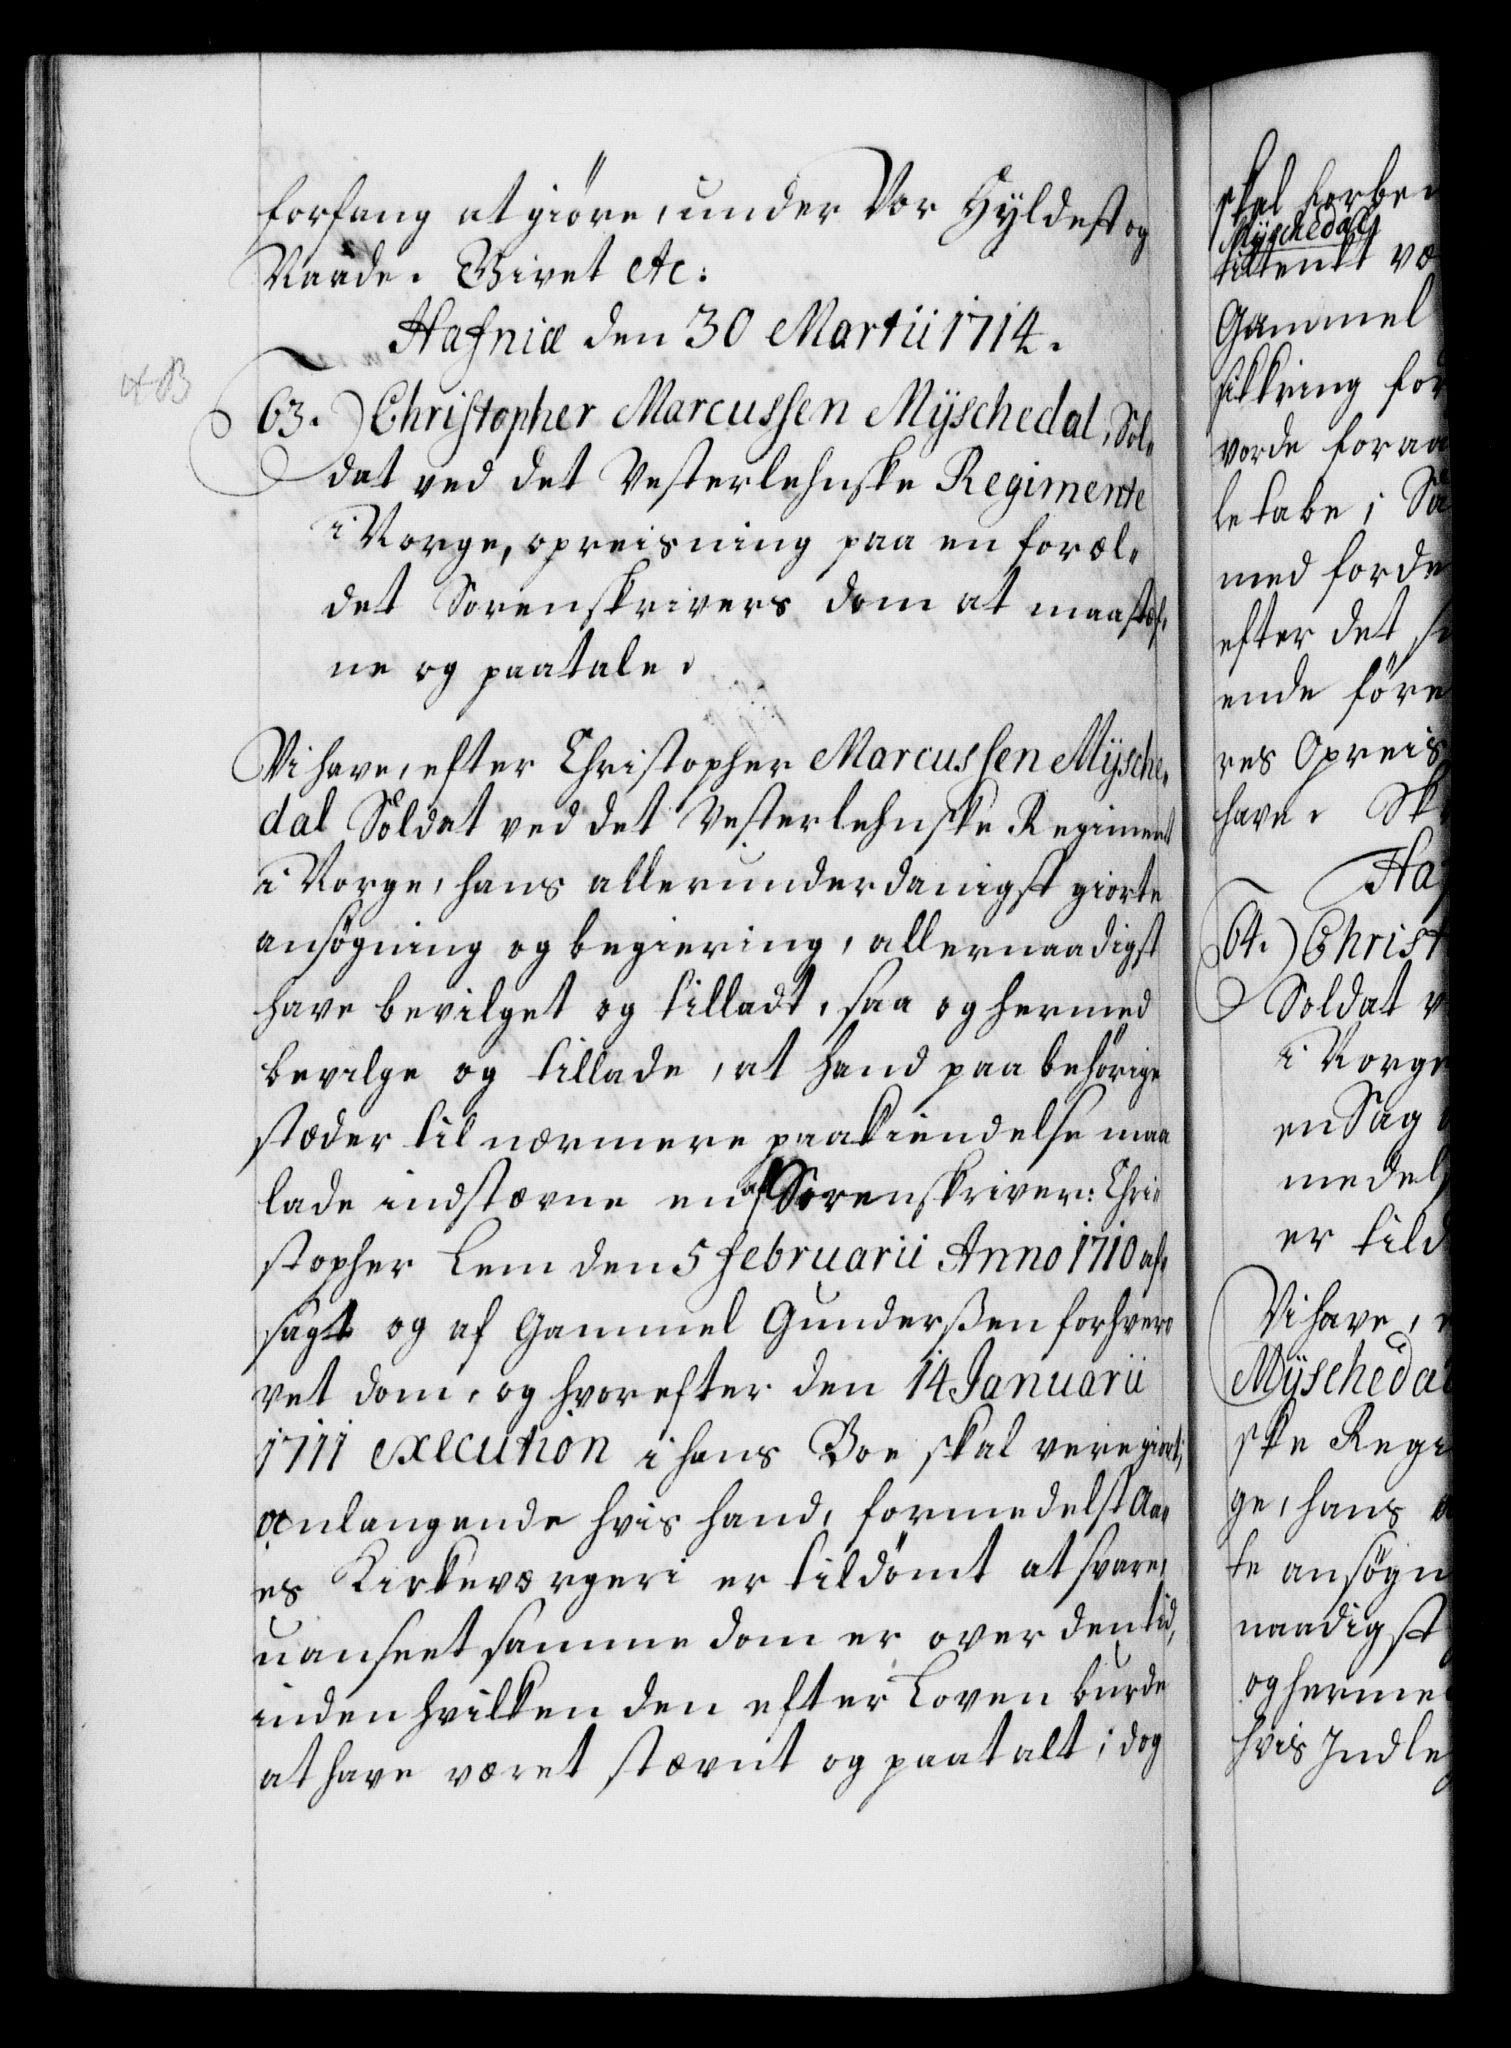 forfang at giöre, under Vor Hyldest og
Naade. Givet etc:
Hafniæ den 30 Martii 1714.
63.) Christopher Marcussen Mÿschedal, Sol-
dat ved det Vesterlehnske Regimente
i Norge, opreisning paa en foræl-
det Sorenskrivers dom at maa stæf-
ne og paatale.
Vi have, efter Christopher Marcussen Mÿsche-
dal Soldat ved det Vesterlehnske Regiment
i Norge, hans allerunderdanigst giorte
ansøgning og begiering, allernaadigst
have bevilget og tilladt, saa og hermed
bevilge og tillade, at hand paa behörige
stæder til nærmere paakiendelse maa
lade indstævne en af Sorenskriver: Chri-
stopher Lem den 5 februarii Anno 1710 af-
sagt og af Gammel Gunderßen forhver-
vet dom, og hvorefter den 14 Januarii
1711 execution i hans Boe skal være giort,
anlangende hvis hand, formedelst Aa-
es Kirkeværgeri er tildömt at svare,
uanseet samme dom er over den tid,
inden hvilken den efter Loven burde
at have været stævnt og paatalt; dog
skal
Mÿschedal
tiltenkt væ
Gammel
sikkring for
vorde foraa
le tabe; Saa
med forde
efter det
ende före
res Opreis
have. Sk
Haf
64.) Christ
Soldat v
i Norge
en Sag
medels
er tild
Vi have,
Mÿschedal
ske Regi
ge, hans
te ansøgn
naadigst
og herme
hvis Indle